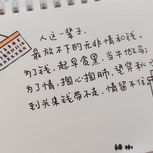 人这一辈子,
最放不下的无非情和钱,
为了钱,起早贪黑,当牛做马;
为了情,掏心掏肺,望穿秋
到头来钱带不走,情留不住